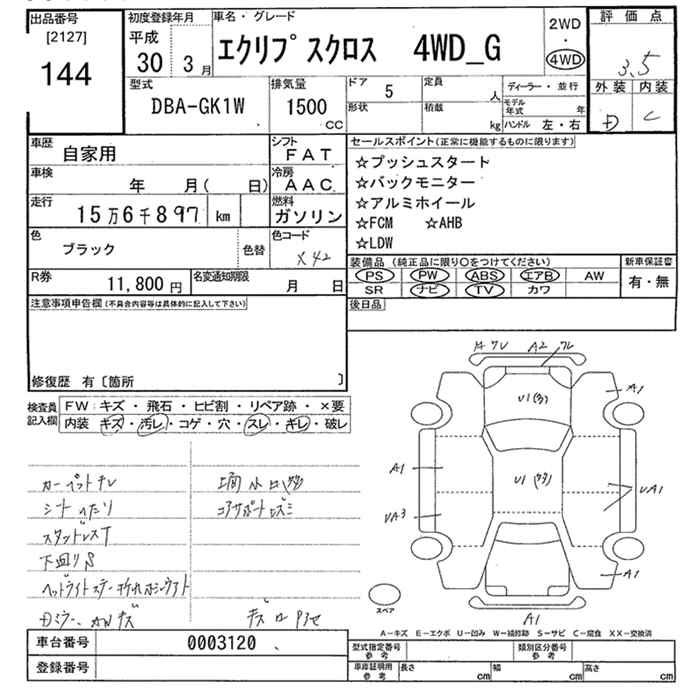 出品番号
[2127]
144
初度登録年月
平成
30 3月
車名・グレード
エクリプスクロス 4WD_G
2WD
・
4WD
評価点
3.5
外装 内装
D C
型式
DBA-GK1W
排気量
1500
CC
ドア
5
形状
定員
人
積載
kg
ディーラー・並行
モデル年式 年
ハンドル 左・右
車歴
自家用
シフト
FAT
車検
年 月( 日)
冷房
AAC
走行
15万6千897 km
燃料
ガソリン
色
ブラック
色替
色コード
X42
R券
11,800円
名変通知期限
月 日
セールスポイント(正常に機能するものに限ります)
☆プッシュスタート
☆バックモニター
☆アルミホイール
☆FCM ☆AHB
☆LDW
装備品 (純正品に限り○をつけてください)
PS PW ABS エアB AW
SR ナビ TV カワ
新車保証書
有・無
後日品
注意事項申告欄(不具合内容等は具体的に記入して下さい)
修復歴 有〔箇所 〕
検査員記入欄
FW:キズ・飛石・ヒビ割・リペア跡・×要
内装 キズ・汚レ・コゲ・穴・スレ・キレ・破レ
カーペットキレ
シートへたり
スタッドレスT
下回りS
コアサポートズミ
A2
A1
U1
U1
A1
UA3
UA1
A1
A1
スペア
A-キズ E-エクボ U-凹み W-補修跡 S-サビ C-腐食 XX-交換済
車台番号
0003120
登録番号
型式指定番号
参考
類別区分番号
参考
車庫証明用
参考
長さ cm 幅 cm 高さ cm